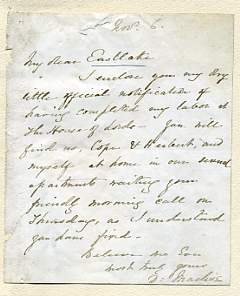 Nov. 6.
My dear Eastlake
I enclose you my dry
little official notification of
having completed my labor at
The House of Lords. You will
find us, Cope & Herbert, and
myself at home in our several
apartments waiting your
friendly morning call on
Thursday, as I understand
you have fixed.
Believe me Ever
most truly yours
D. Maclise